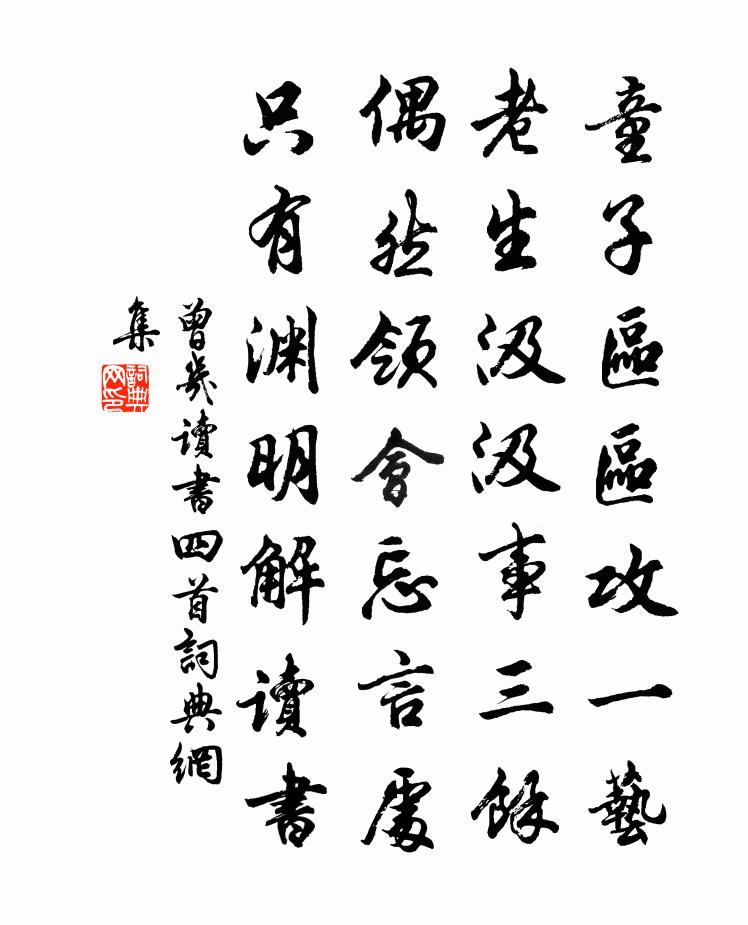 童子區區攻一藝
老生汲汲事三餘
偶然領會忘言處
只有渊明解讀書
曾幾讀書四首詞典網
集
詞典
网印